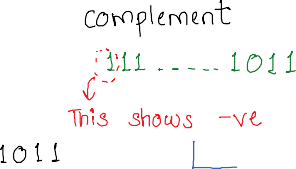 complement
111 ...... 1011
This shows -ve
1011